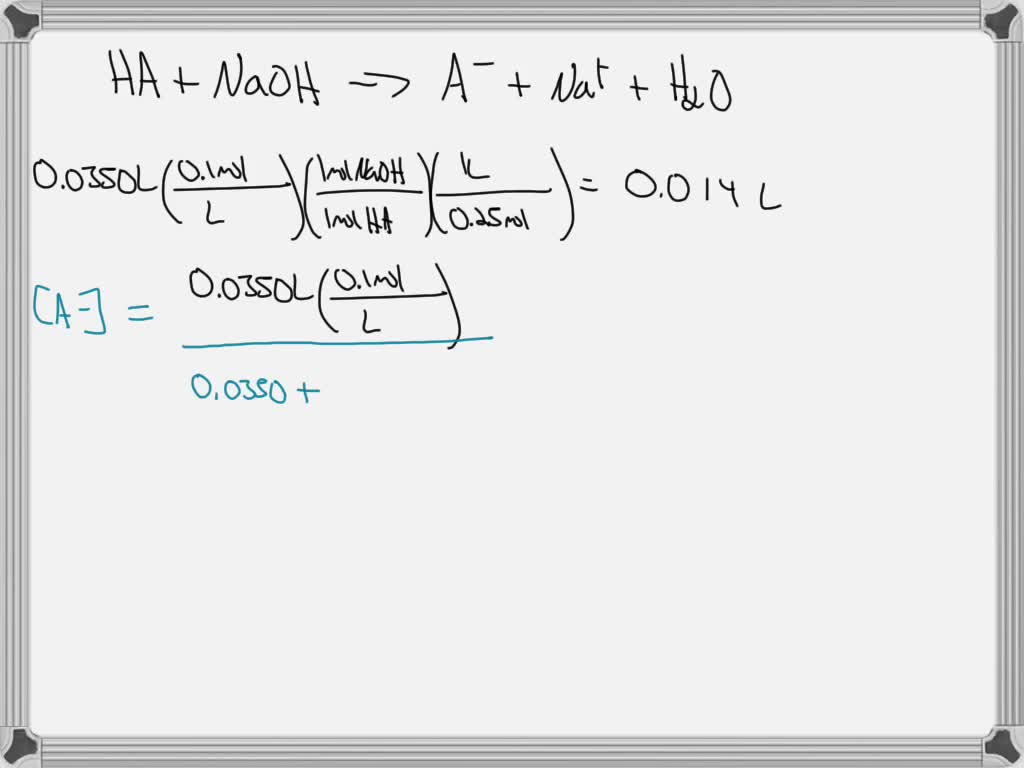 HA + NaOH ⇒ A⁻ + Na⁺ + H₂O
0.0350L (0.1mol / L) (1mol NaOH / 1mol HA) (1L / 0.25mol) = 0.014 L
[A⁻] = 0.0350L (0.1mol / L)
0.0350 +